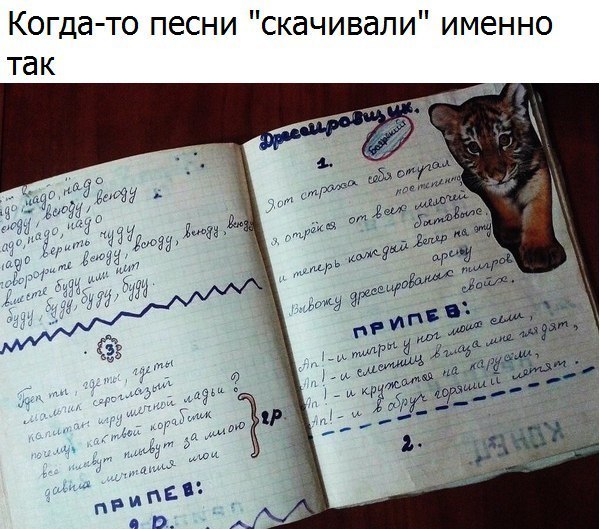 Когда-то песни "скачивали" именно
так
надо, надо
всюду, всюду, всюду
надо, надо, надо
надо верить чуду
всюду, всюду, всюду, всюду
вместе буду или нет
буду, буду, буду, буду.
3
Где ты, где ты, где ты
мальчик сероглазый
капитан игрушечной ладьи ?
почему, как твой кораблик
все плывут плывут за мною
давние мечтания мои
2р.
ПРИПЕВ:
2 р.
Дрессировщик.
1.
Я от страха себя отучал
постепенно
я, отрёкся от всех мелочей
бытовых.
и теперь каждый вечер на эту
арену
Вывожу дрессированых тигров
своих.
ПРИПЕВ:
Ап! - и тигры у ног моих сели,
Ап! - и с лестниц в глаза мне глядят,
Ап! - и кружатся на карусели,
Ап! - и в обруч горящий летят.
2.
КОНЕЦ